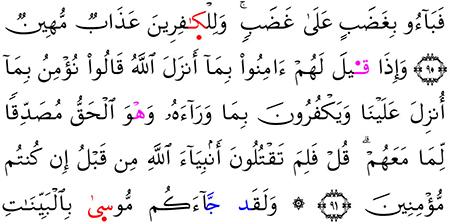 فَبَآءُو بِغَضَبٍ عَلَىٰ غَضَبٍ ۚ وَلِلْكَـٰفِرِينَ عَذَابٌ مُّهِينٌ
﴿٩٠﴾ وَإِذَا قِيلَ لَهُمْ ءَامِنُوا۟ بِمَآ أَنزَلَ ٱللَّهُ قَالُوا۟ نُؤْمِنُ بِمَآ
أُنزِلَ عَلَيْنَا وَيَكْفُرُونَ بِمَا وَرَآءَهُۥ وَهْوَ ٱلْحَقُّ مُصَدِّقًا
لِّمَا مَعَهُمْ ۗ قُلْ فَلِمَ تَقْتُلُونَ أَنۢبِيَآءَ ٱللَّهِ مِن قَبْلُ إِن كُنتُم
مُّؤْمِنِينَ ﴿٩١﴾ ۞ وَلَقَد جَّآءَكُم مُّوسَىٰ بِٱلْبَيِّنَـٰتِ